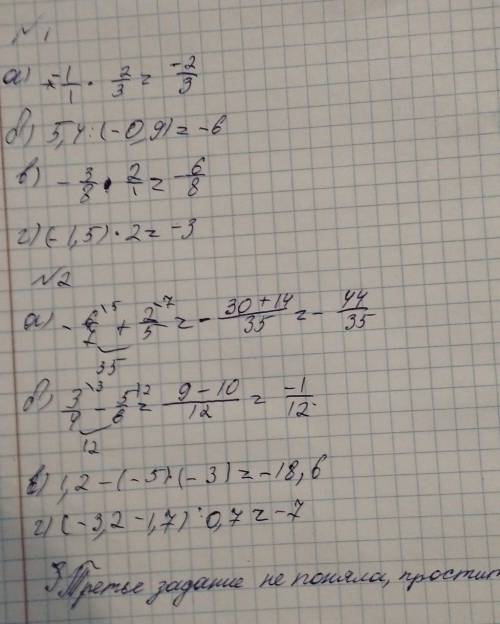 №1
а) -1/1 · 2/3 = -2/3
б) 5,4 : (-0,9) = -6
в) - 3/8 · 2/1 = -6/8
г) (-1,5) · 2 = -3
№2
а) - 6\5/7 + 2\7/5 = - 30+14/35 = - 44/35
35
б) 3\3/4 - 5\2/6 = 9-10/12 = -1/12
12
в) 1,2 - (-5) · (-3) = -18,6
г) (-3,2 - 1,7) : 0,7 = -7
3 Третье задание не поняла, простит